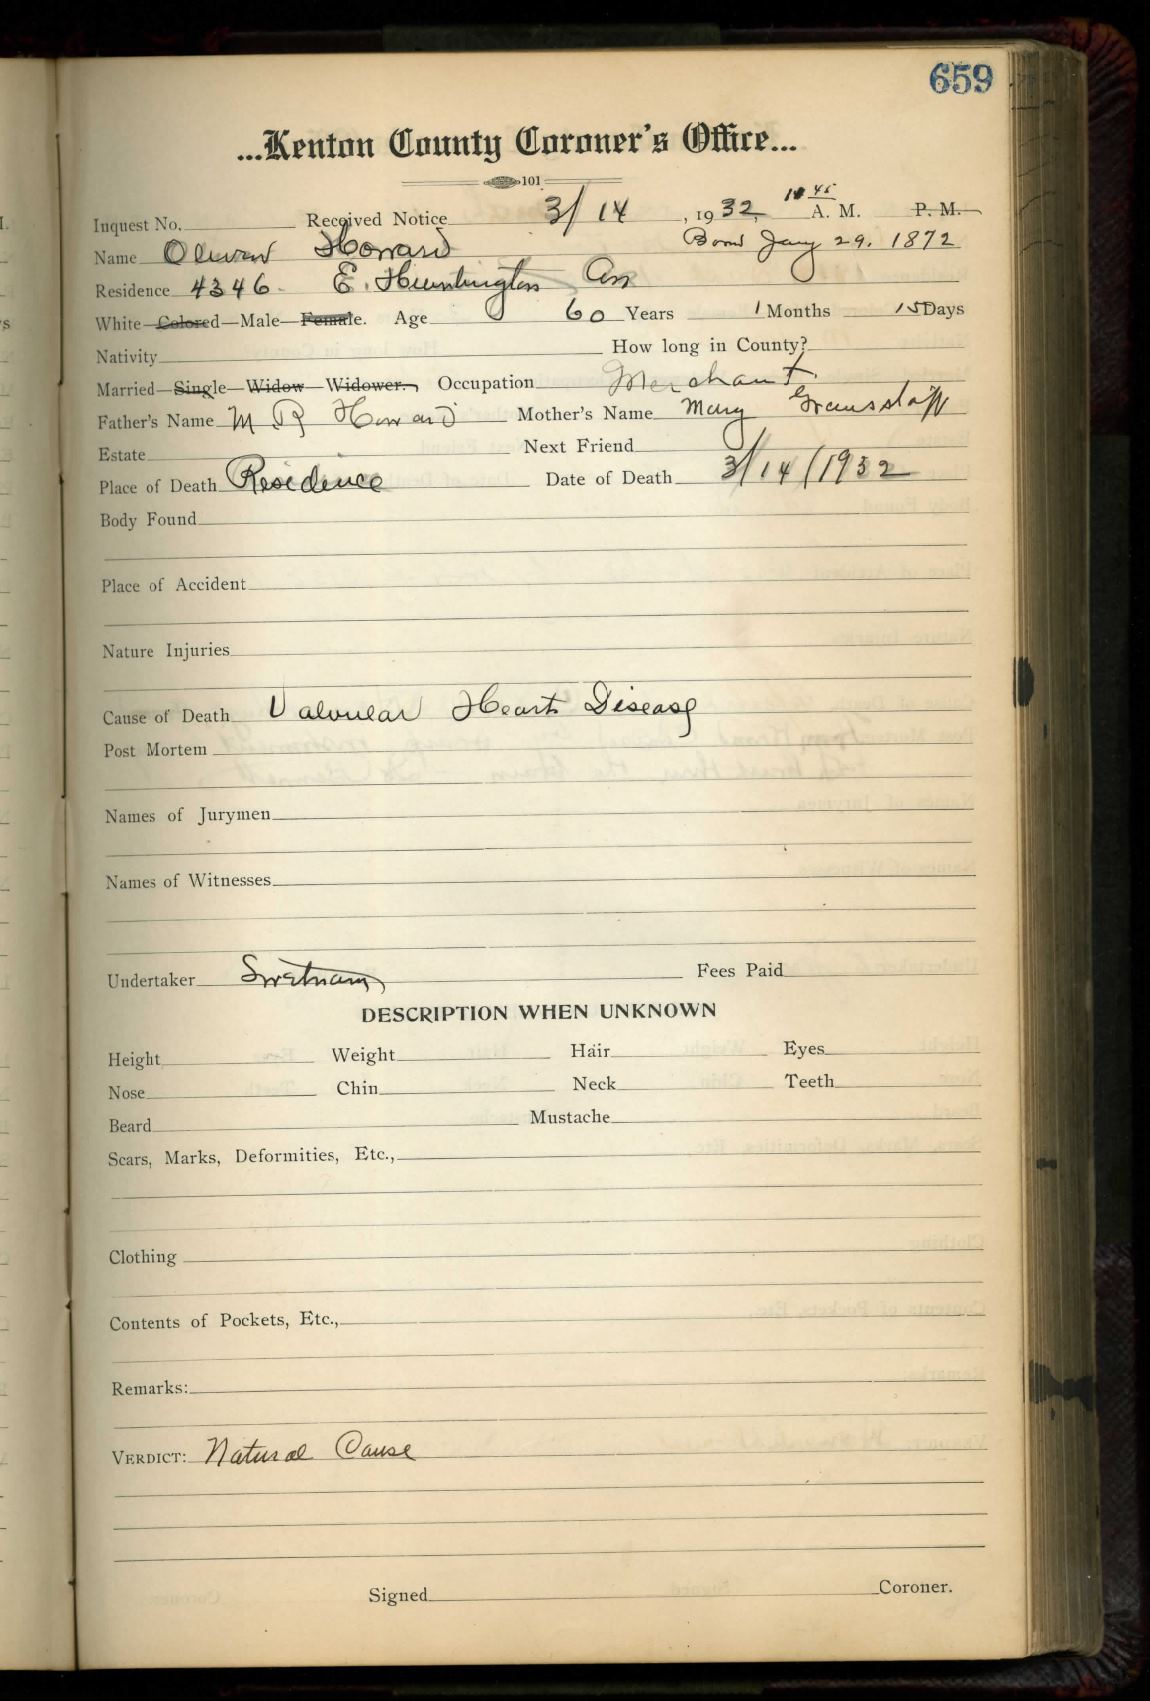 659
...Kenton County Coroner's Office...
101
Inquest No. Received Notice 3/14, 1932, 10 45 A. M. P. M.
Name Oliver Howard Born Jany 29. 1872
Residence 4346 E. Huntington Av
White—Colored—Male—Female. Age 60 Years 1 Months 15 Days
Nativity How long in County?
Married—Single—Widow—Widower. Occupation Merchant
Father's Name M R Howard Mother's Name Mary
Estate Next Friend
Place of Death Residence Date of Death 3/14/1932
Body Found
Place of Accident
Nature Injuries
Cause of Death Valvular Heart Disease
Post Mortem
Names of Jurymen
Names of Witnesses
Undertaker Swetnam Fees Paid
DESCRIPTION WHEN UNKNOWN
Height Weight Hair Eyes
Nose Chin Neck Teeth
Beard Mustache
Scars, Marks, Deformities, Etc.,
Clothing
Contents of Pockets, Etc.,
Remarks:
VERDICT: Natural Cause
Signed Coroner.